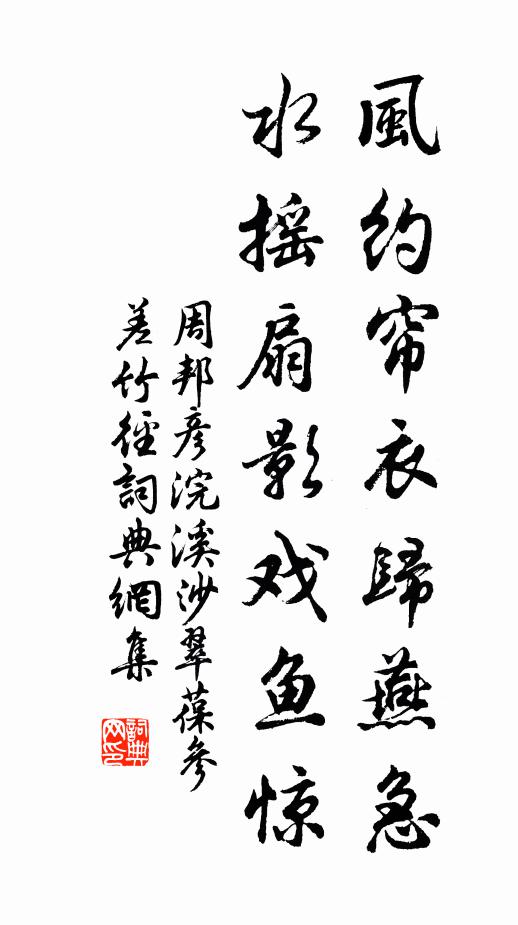 風約帘衣歸燕急
水摇扇影戏鱼惊
周邦彦浣溪沙翠葆參
差竹徑詞典網集
詞典网印